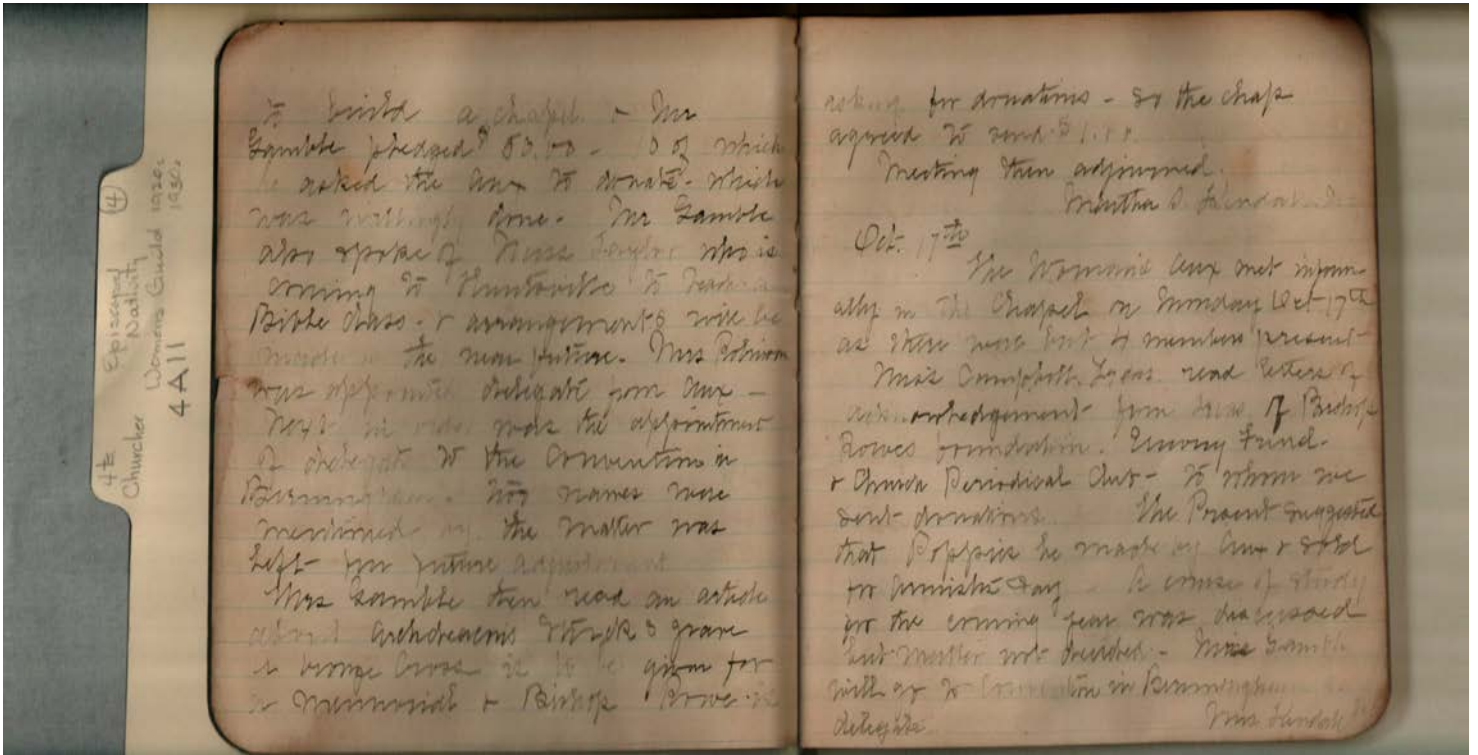 4th Episcopal ④
Churches Nativity
Womens Guild 1920s
1930s
4A11
to build a chapel - Mr
Gamble pledged $50.00 - 10 of which
he asked the Aux to donate - which
was willingly done. Mr Gamble
also spoke of Miss Taylor who is
coming to Huntsville to teach a
Bible Class - & arrangements will be
made in the near future. Mrs Robinson
was appointed delegate from Aux -
Next in order was the appointment
of delegate to the Convention in
Birmingham. names were
mentioned the matter was
left for future adjustment
Mrs Gamble then read an article
about Archdeacons Stucks grave
a bronze Cross is to be given for
a Memorial & Bishop Rowe is
asking for donations - so the Chap
agreed to send $1.00
Meeting then adjourned.
Martha
Oct. 17th
The Womans Aux met inform-
ally in the Chapel on Oct 17th
as there were but members present -
Miss Campbell read letters of
acknowledgement from of Bishop
Rowes foundation. Emery Fund.
& Church Periodical Club - to whom we
sent donations. The suggested
that Poppies be made by Aux & sold
for Armistice Day - A course of study
for the coming year was discussed
but matter not decided - Gamble
will go to Convention in Birmingham as
delegate. Mrs